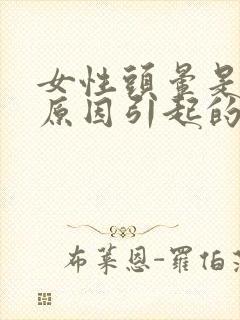 女性頭暈是
原因引起的
布萊恩-羅伯